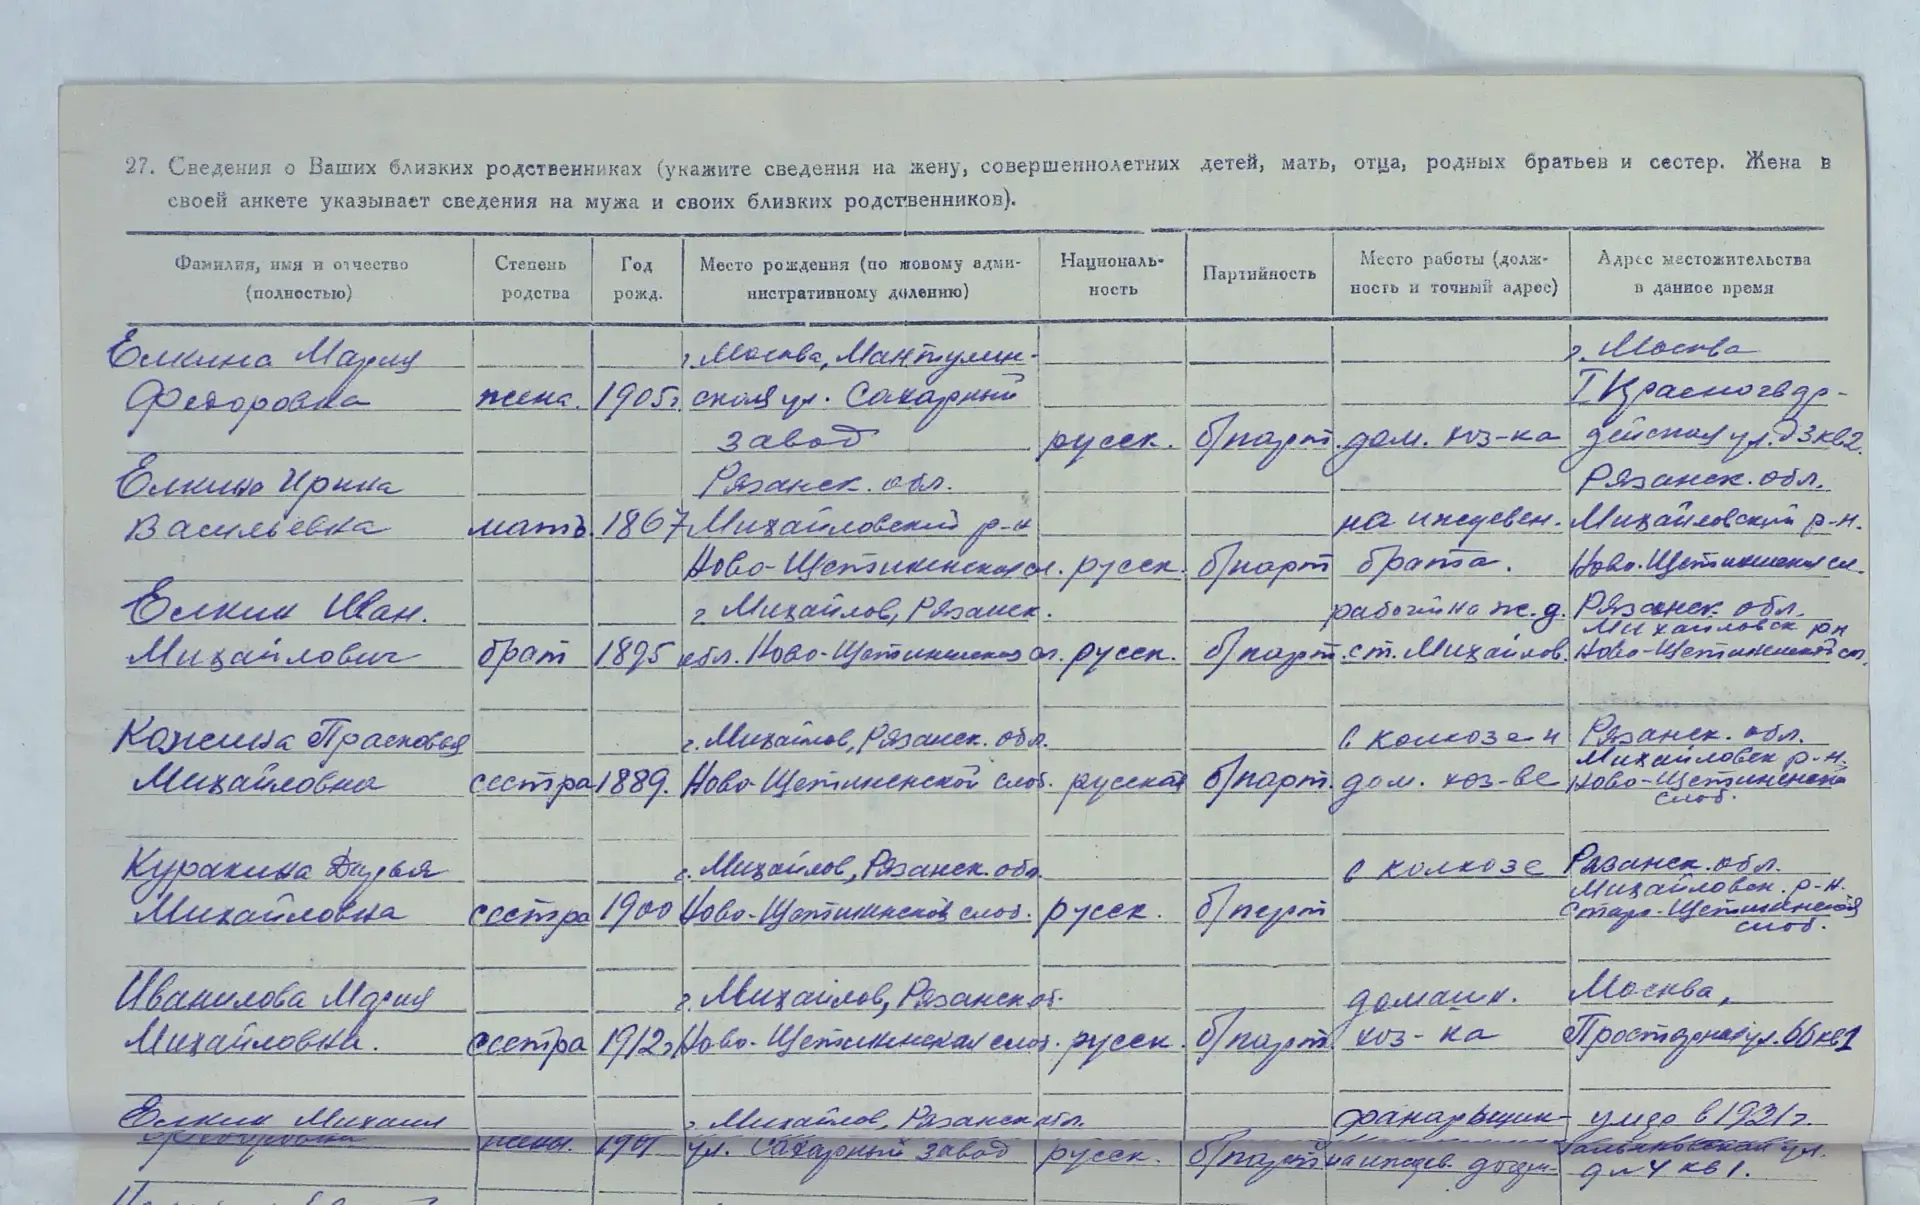 27. Сведения о Ваших близких родственниках (укажите сведения на жену, совершеннолетних детей, мать, отца, родных братьев и сестер. Жена в
своей анкете указывает сведения на мужа и своих близких родственников).
Фамилия, имя и отчество
(полностью)
Степень
родства
Год
рожд.
Место рождения (по новому адми-
нистративному делению)
Националь-
ность
Партийность
Место работы (долж-
ность и точный адрес)
Адрес местожительства
в данное время
Елкина Мария г. Москва, Мантулин- г. Москва
Федоровна жена. 1905г. ская ул. Сахарный I Красногвар-
завод русск. б/парт. дом. хоз-ка дейская ул. д 3 кв 2.
Елкина Ирина Рязанск. обл. Рязанск. обл.
Васильевна мать. 1867 Михайловский р-н на иждивен. Михайловский р-н.
Ново-Щетининская сл. русск. б/парт брата. Ново-Щетининская сл.
Елкин Иван. г Михайлов, Рязанск. рабочий на ж.д. Рязанск. обл.
Михайловск рн
Михайлович брат 1895 обл. Ново-Щетининская сл. русск. б/парт. ст. Михайлов. Ново-Щетининской сл.
Кожина Прасковья г. Михайлов, Рязанск. обл. в колхозе и Рязанск. обл.
Михайловск р-н.
Михайловна сестра 1889г. Ново-Щетининской слоб. русская б/парт. дом. хоз-ве Ново-Щетининская
слоб.
Куракина Дарья г. Михайлов, Рязанск. обл. в колхозе Рязанск. обл.
Михайловск. р-н.
Михайловна сестра 1900 Ново-Щетининской слоб. русск. б/парт Старо-Щетининская
слоб.
Иванилова Мария г. Михайлов, Рязанск об. домашн. Москва,
Михайловна. сестра 1912г Ново-Щетининская слоб. русск. б/парт хоз-ка Просторная ул. 6б кв 1
Елкин Михаил г Михайлов, Рязанск обл. фанарьщик умер в 1931г.
жены. ул. Сахарный завод русск. б/парт на иждев. ул.
д № 4 кв 1.